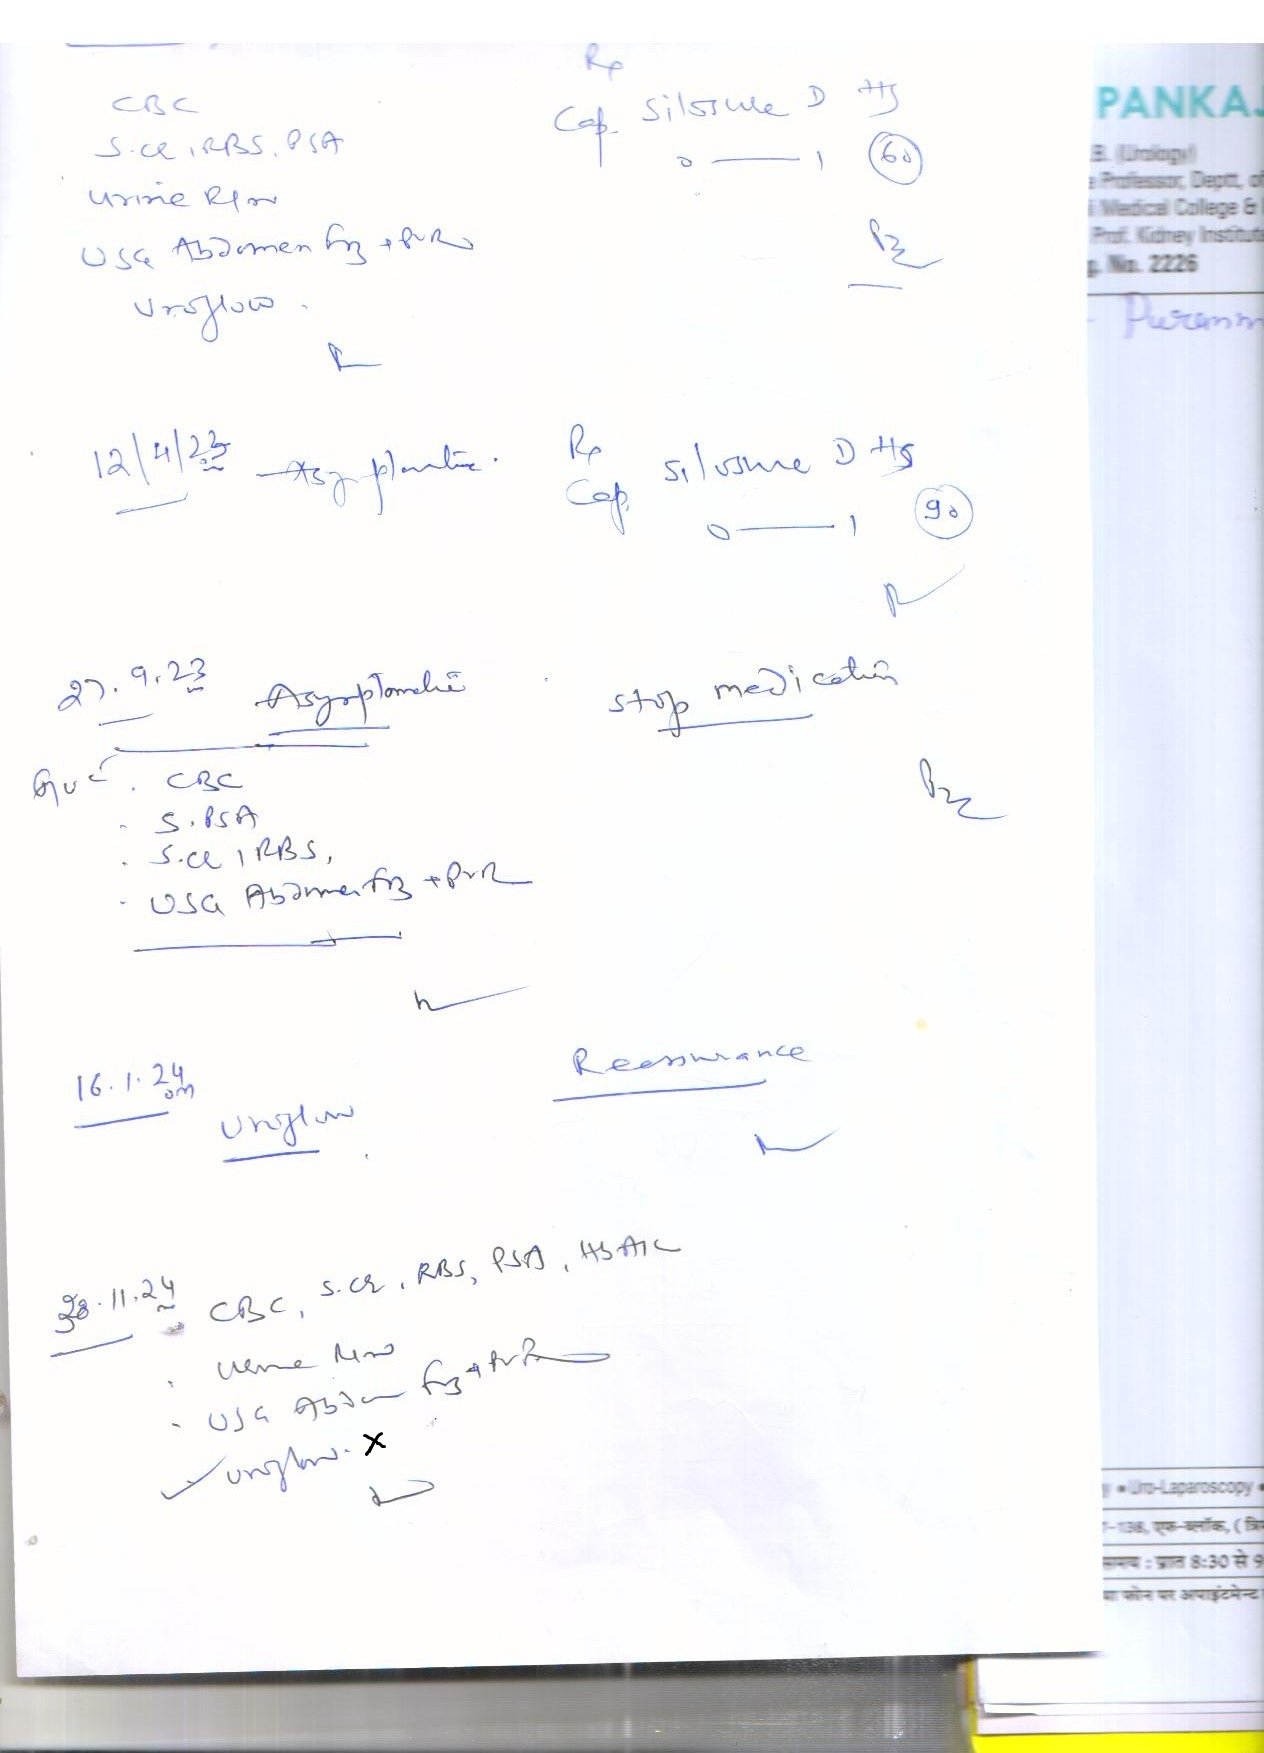 Rx
CBC
Cap. Silosure D HS
S.Cr, RBS, PSA
0 —— 1 (60)
Urine R/M
USG Abdomen + PVR
Uroflow.
12/4/23 Asymptomatic.
Rx
Cap. Silosure D HS
0 —— 1 (90)
27.9.23 Asymptomatic
stop medication
. CBC
. S.PSA
. S.Cr, RBS,
. USG Abdomen + PVR
16.1.24
Reassurance
Uroflow
.11.24 CBC, S.Cr, RBS, PSA, HbA1c
. Urine R/M
. USG Abdomen + PVR
✓ Uroflow. X
PANKAJ
B. (Urology)
Professor, Deptt, of
Medical College &
Prof. Kidney Institute
No. 2226
• Uro-Laparoscopy •
-138, एफ-ब्लॉक,
समय : प्रात 8:30 से 9
फोन पर अपाइंटमेन्ट